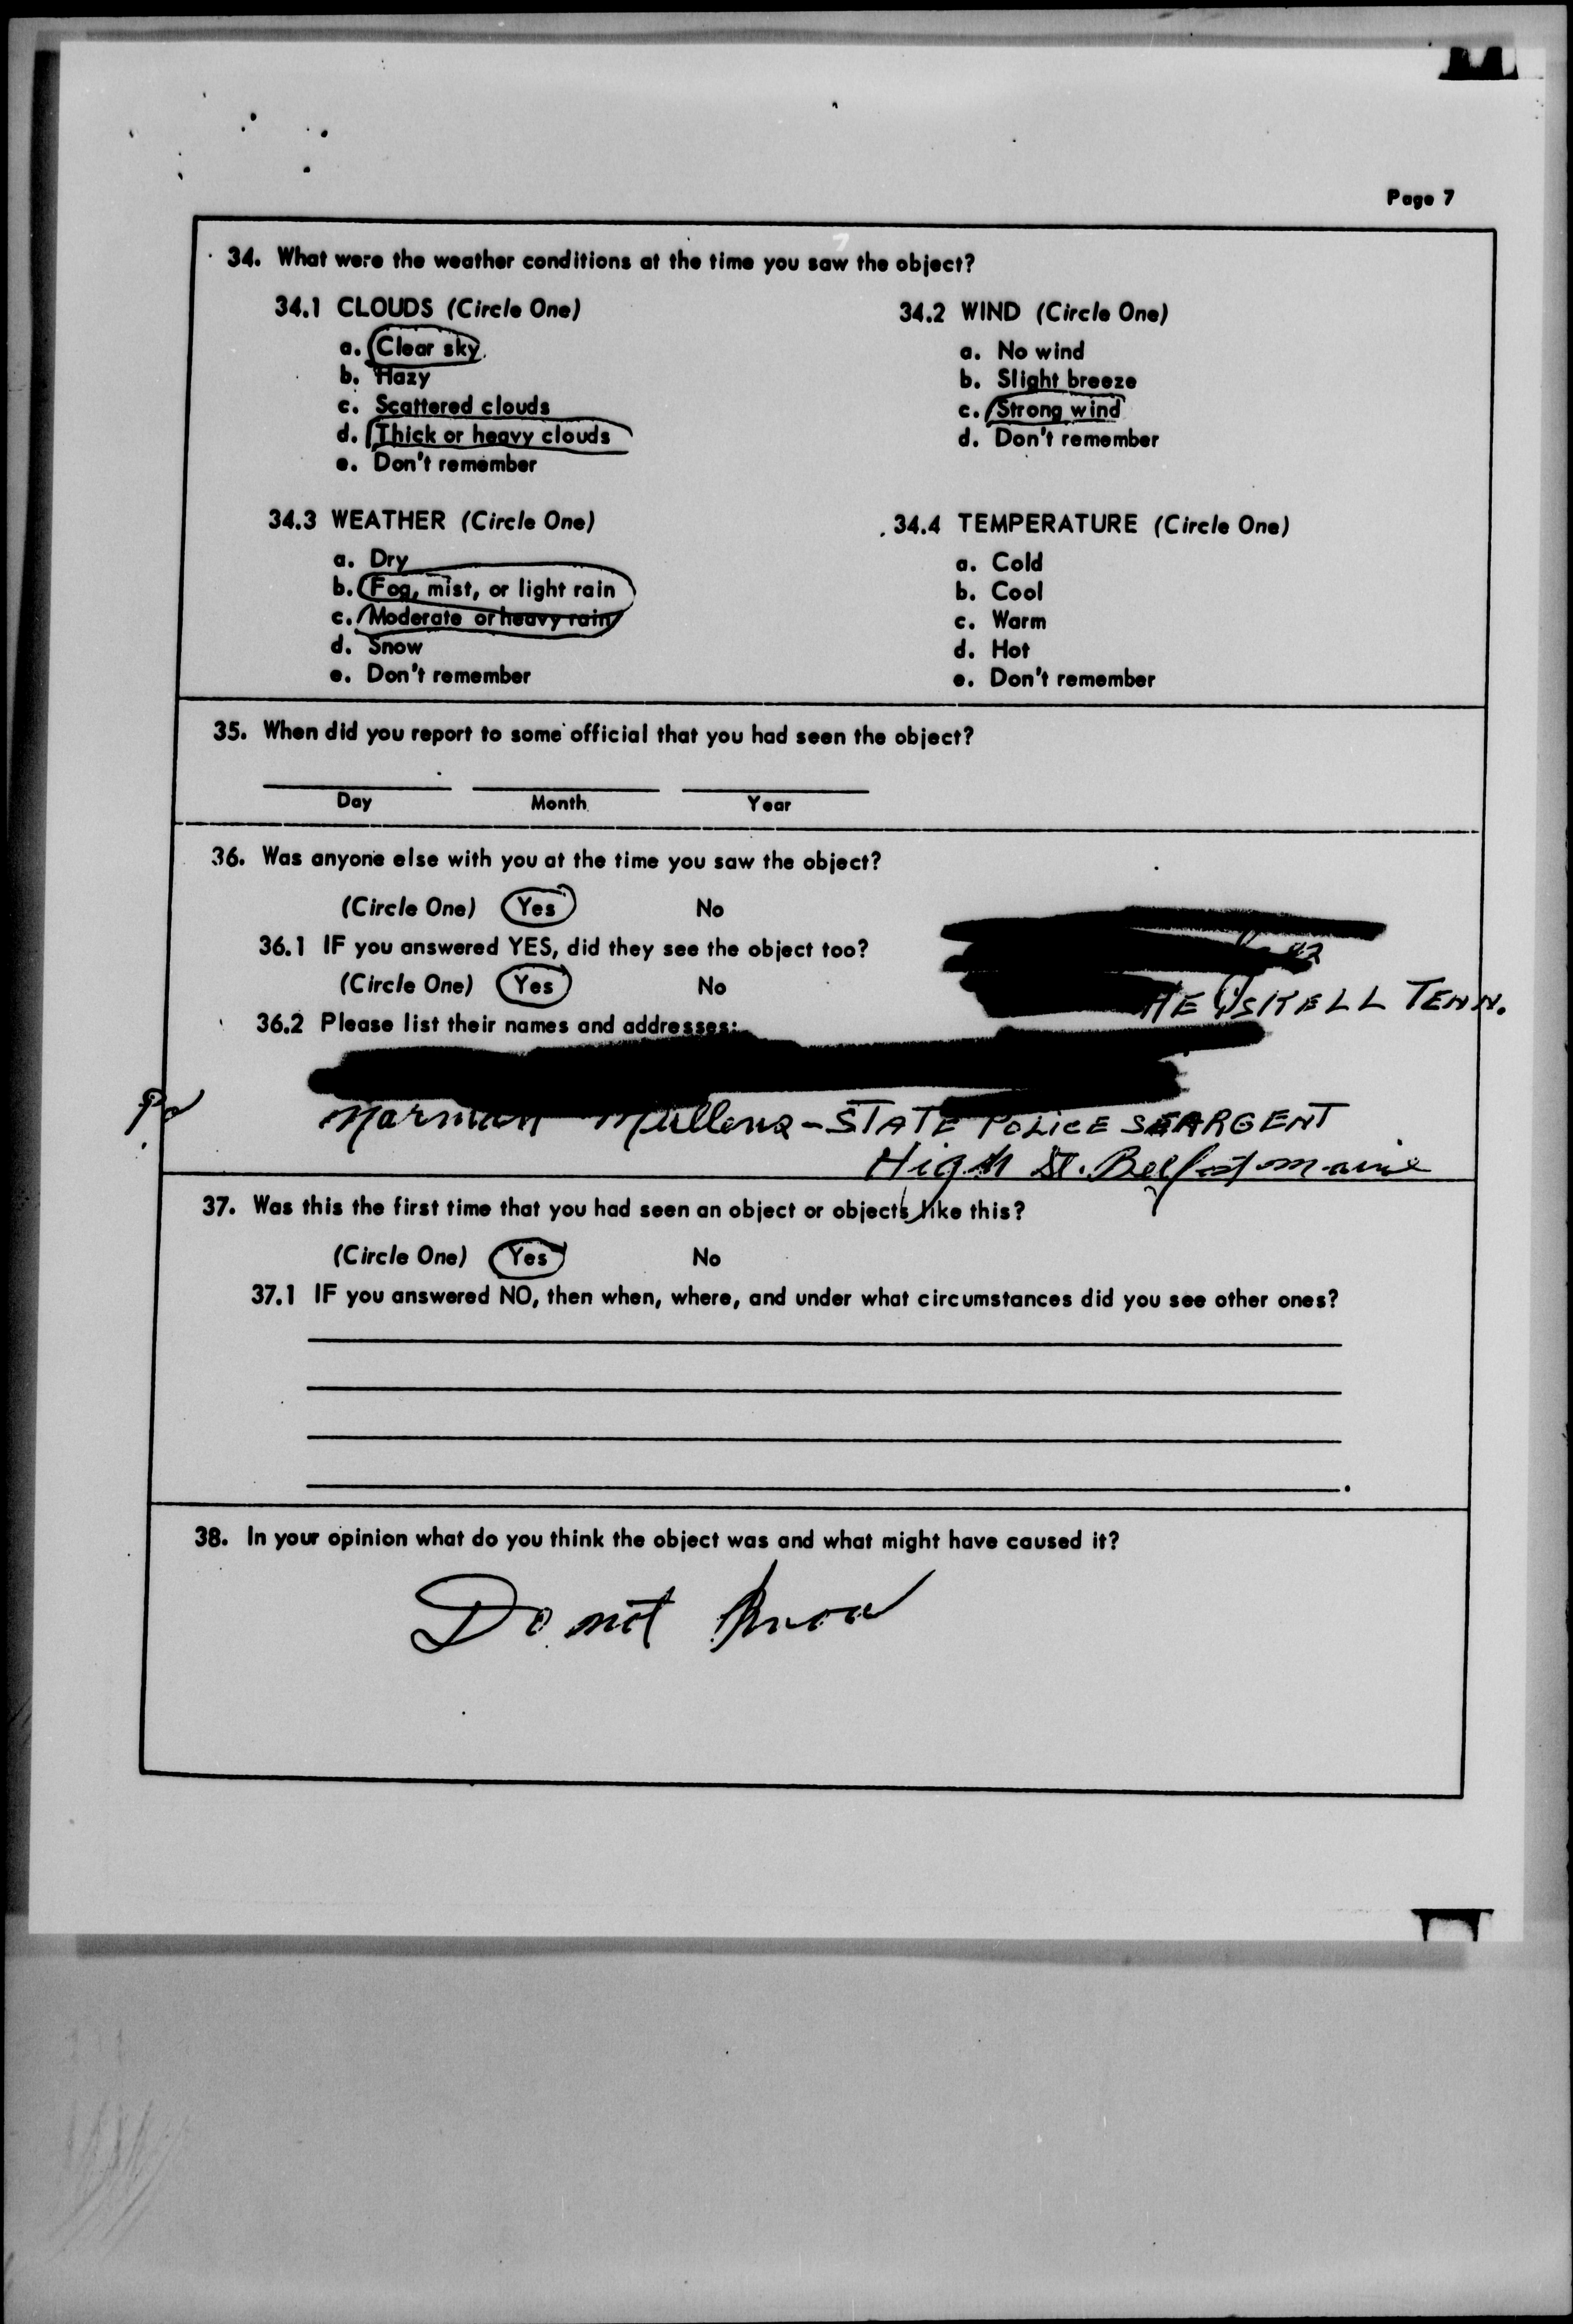 Page 7
34. What were the weather conditions at the time you saw the object?
34.1 CLOUDS (Circle One)
a. Clear sky
b. Hazy
c. Scattered clouds
d. Thick or heavy clouds
e. Don't remember
34.2 WIND (Circle One)
a. No wind
b. Slight breeze
c. Strong wind
d. Don't remember
34.3 WEATHER (Circle One)
a. Dry
b. Fog, mist, or light rain
c. Moderate or heavy rain
d. Snow
e. Don't remember
34.4 TEMPERATURE (Circle One)
a. Cold
b. Cool
c. Warm
d. Hot
e. Don't remember
35. When did you report to some official that you had seen the object?
Day Month Year
36. Was anyone else with you at the time you saw the object?
(Circle One) Yes No
36.1 IF you answered YES, did they see the object too?
(Circle One) Yes No
HEISKELL TENN.
36.2 Please list their names and addresses:
Norman Mullens - STATE POLICE SEARGENT
High St. Belfast maine
37. Was this the first time that you had seen an object or objects like this?
(Circle One) Yes No
37.1 IF you answered NO, then when, where, and under what circumstances did you see other ones?
38. In your opinion what do you think the object was and what might have caused it?
Do not know